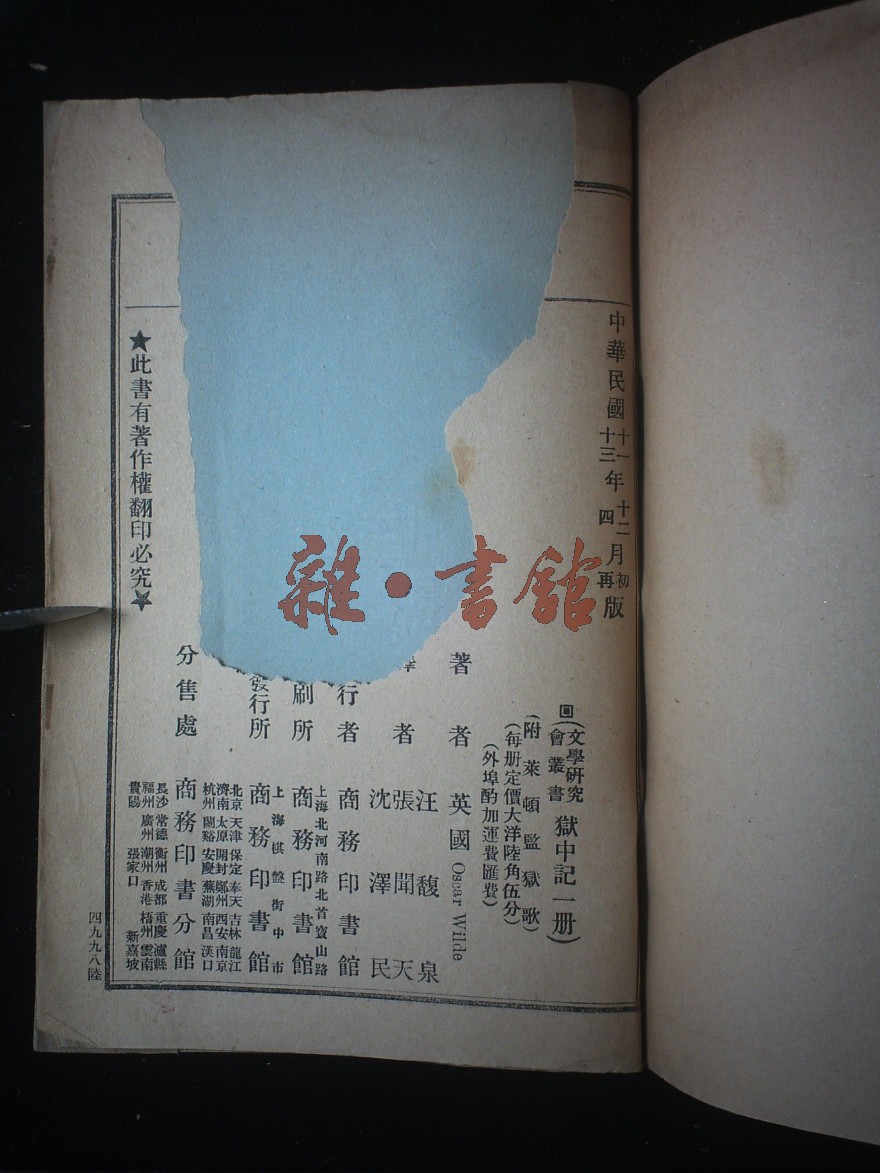 中華民國十一年十二月初版
十三年四月再版
(文學研究會叢書)獄中記一册)
(附萊頓監獄歌)
(每册定價大洋陸角伍分)
(外埠酌加運費匯費)
著者 英國 Oscar Wilde
者 汪馥泉
張聞天
沈澤民
行者 商務印書館
刷所 上海北河南路北首寶山路
商務印書館
發行所 上海棋盤街中市
商務印書館
分售處 商務印書分館
北京 天津 保定 奉天 吉林 龍江
濟南 太原 開封 鄭州 西安 南京
杭州 蘭谿 安慶 蕪湖 南昌 漢口
長沙 常德 衡州 成都 重慶 瀘縣
福州 廣州 潮州 香港 梧州 雲南
貴陽 張家口 新嘉坡
★此書有著作權翻印必究★
四九九八陸
雜·書館